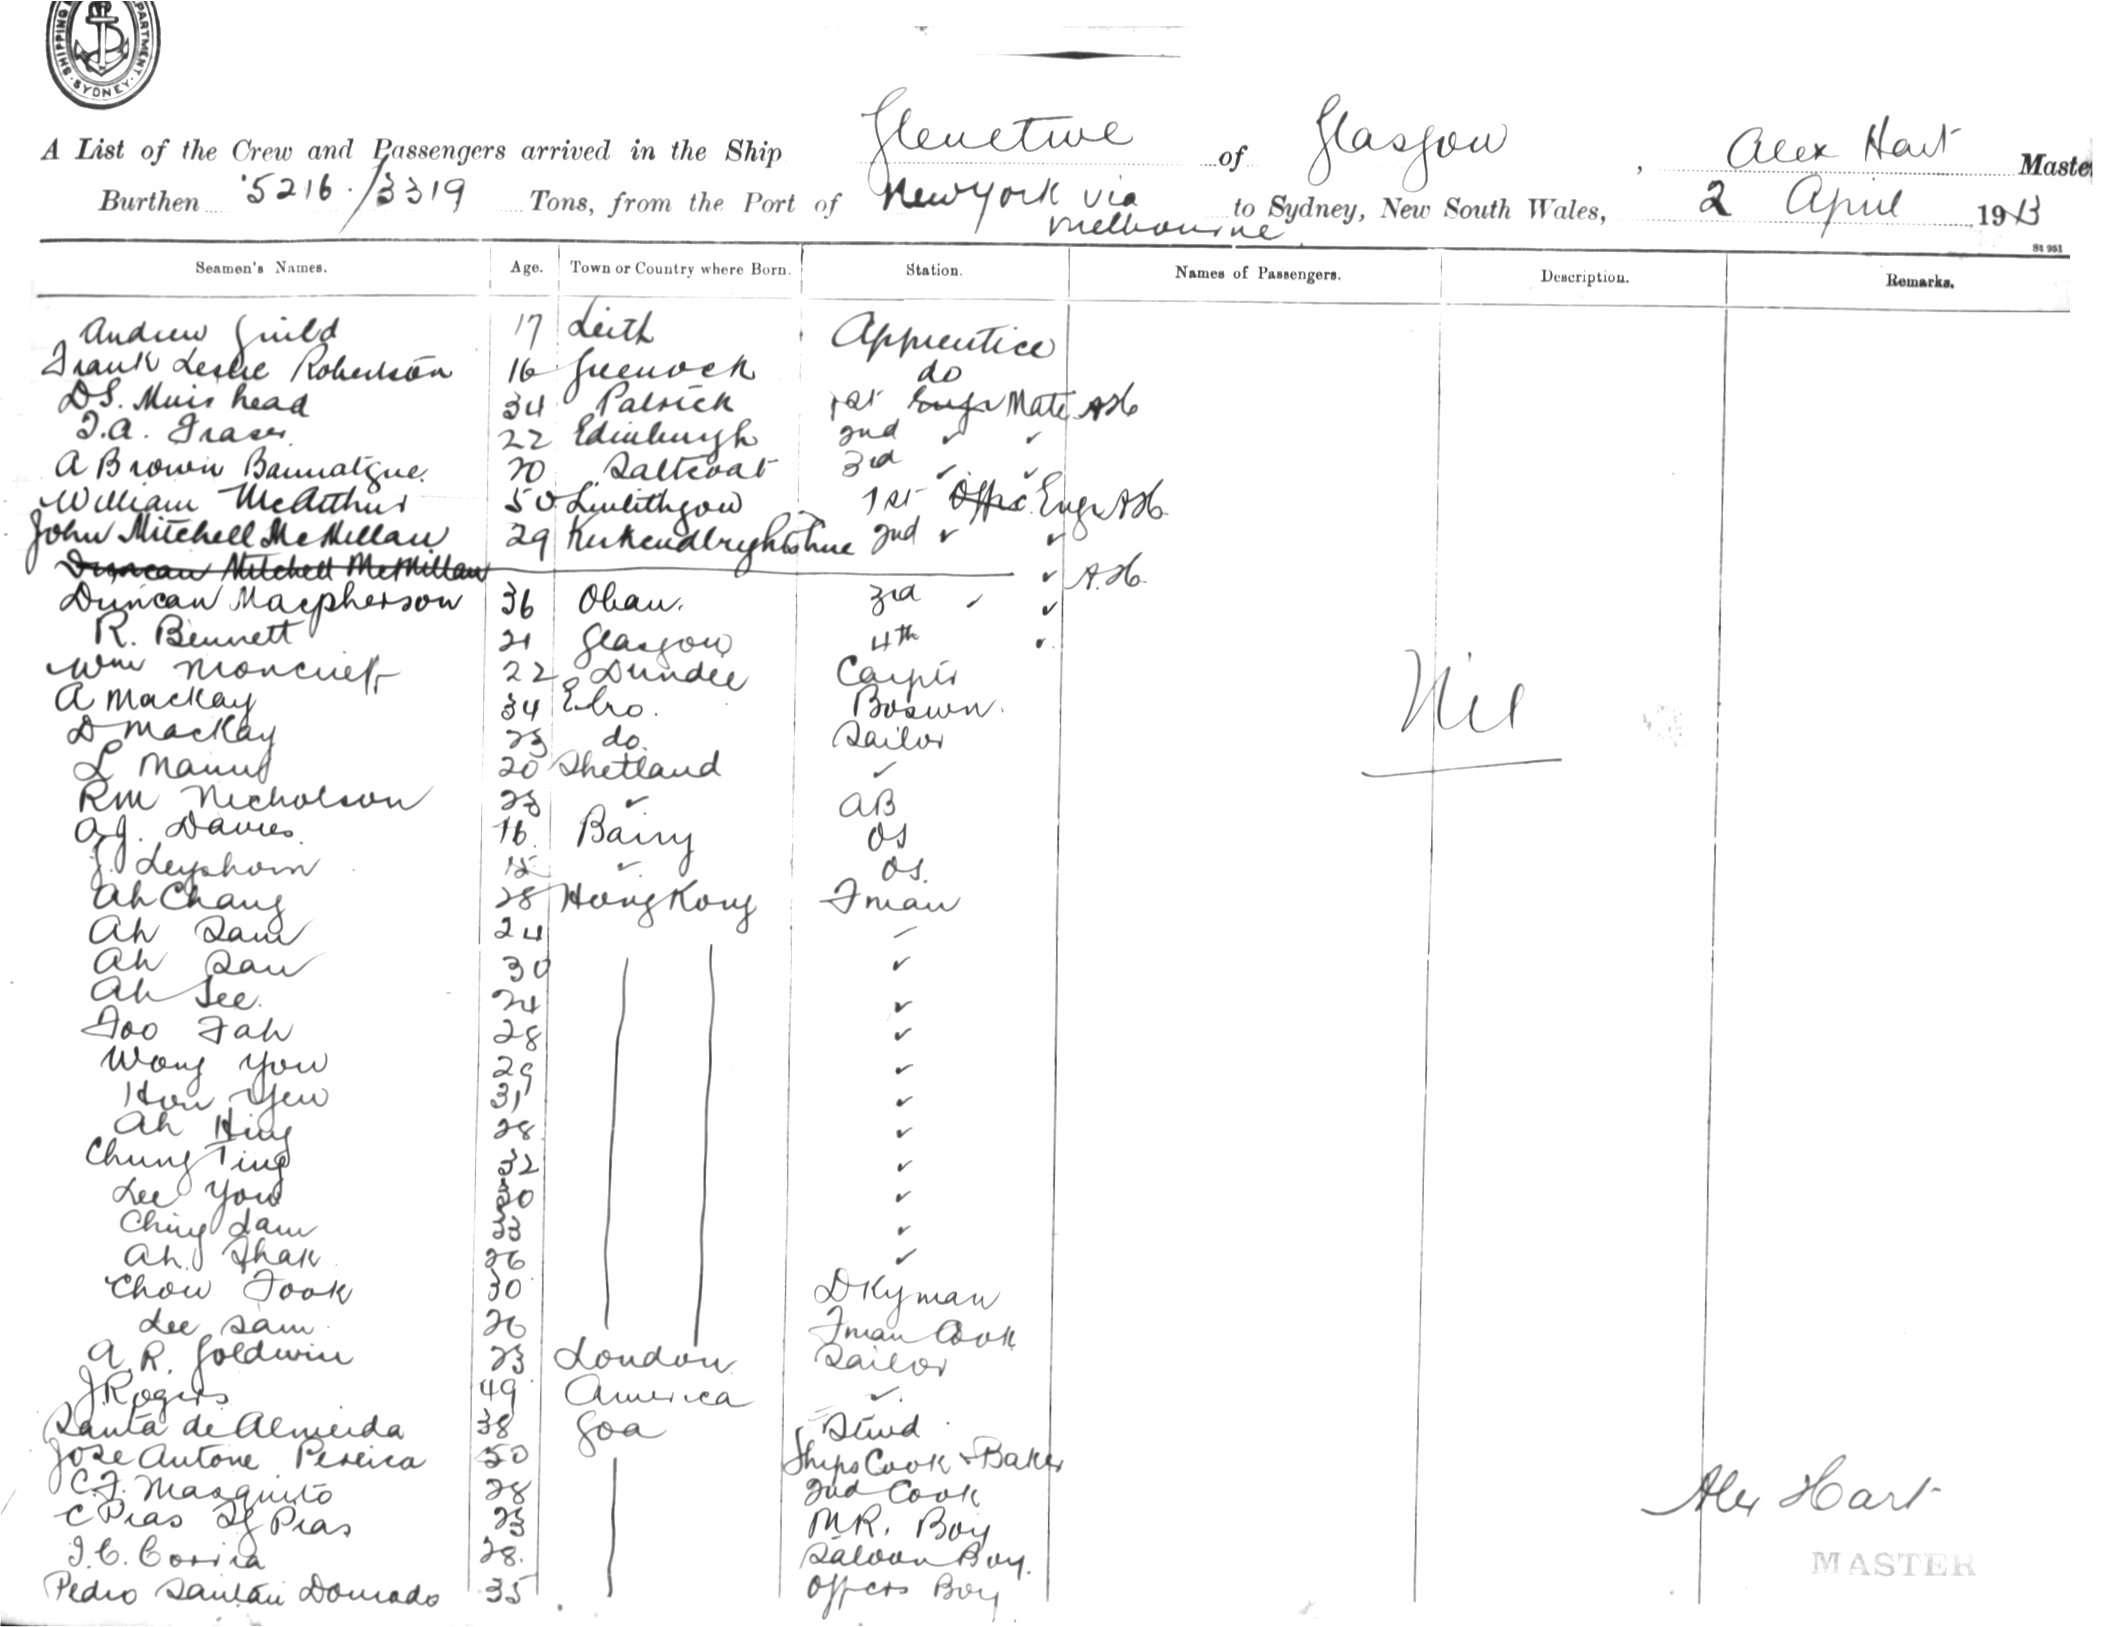 SHIPPING DEPARTMENT SYDNEY
A List of the Crew and Passengers arrived in the Ship Glenetive of Glasgow, Alex Hart Master
Burthen 5216/3319 Tons, from the Port of New York via Melbourne to Sydney, New South Wales, 2 April 1913
St 951
Seamen's Names. Age. Town or Country where Born. Station. Names of Passengers. Description. Remarks.
Andrew Guild 17 Leith Apprentice
Frank Leslie Robertson 16 Greenock do
D S. Muirhead 34 Patrick 1st Engr Mate AH
T.A. Fraser 22 Edinburgh 2nd ✓ ✓
A Brown Bannatyne 20 Saltcoat 3rd ✓ ✓
William McArthur 50 Linlithgow 1st Offic Engr AH
John Mitchell McMillan 29 Kirkcudbrightshire 2nd ✓ ✓
Duncan Mitchell McMillan ✓ A.H.
Duncan Macpherson 36 Oban. 3rd ✓ ✓
R. Bennett 21 Glasgow 4th ✓
Wm Moncrieff 22 Dundee Carptr
A Mackay 34 Ebro. Boswn.
D Mackay 23 do. Sailor
L 20 Shetland ✓
RM Nicholson 23 ✓ AB
A.J. Davies 16. Barry OS
J. Leyshorn ✓ OS.
Ah Chang 28 Hong Kong Fman
Ah Sam 24 ✓
Ah San 30 ✓
Ah See. 24 ✓
Foo Fah 28 ✓
Wong You 29 ✓
Hou Yew 31 ✓
Ah Hing 28 ✓
Chung Ting 32 ✓
Lee You 30 ✓
Ching Lam 33 ✓
Ah Shak 26 ✓
Chow Fook 30 DKyman
Lee Sam 26 Fman Cook
A. R. Goldwin 23 London Sailor
J Rogers 49 America ✓
Santa de Almeida 38 Goa Stwd
Jose Antone Pereira 50 Ships Cook & Baker
C.F. Masquito 28 2nd Cook
C Pias Pias 23 M.R. Boy
J.C. Coria 28. Saloon Boy.
Pedro Santan Dourado 35 Offcrs Boy
Nil
Alex Hart
MASTER